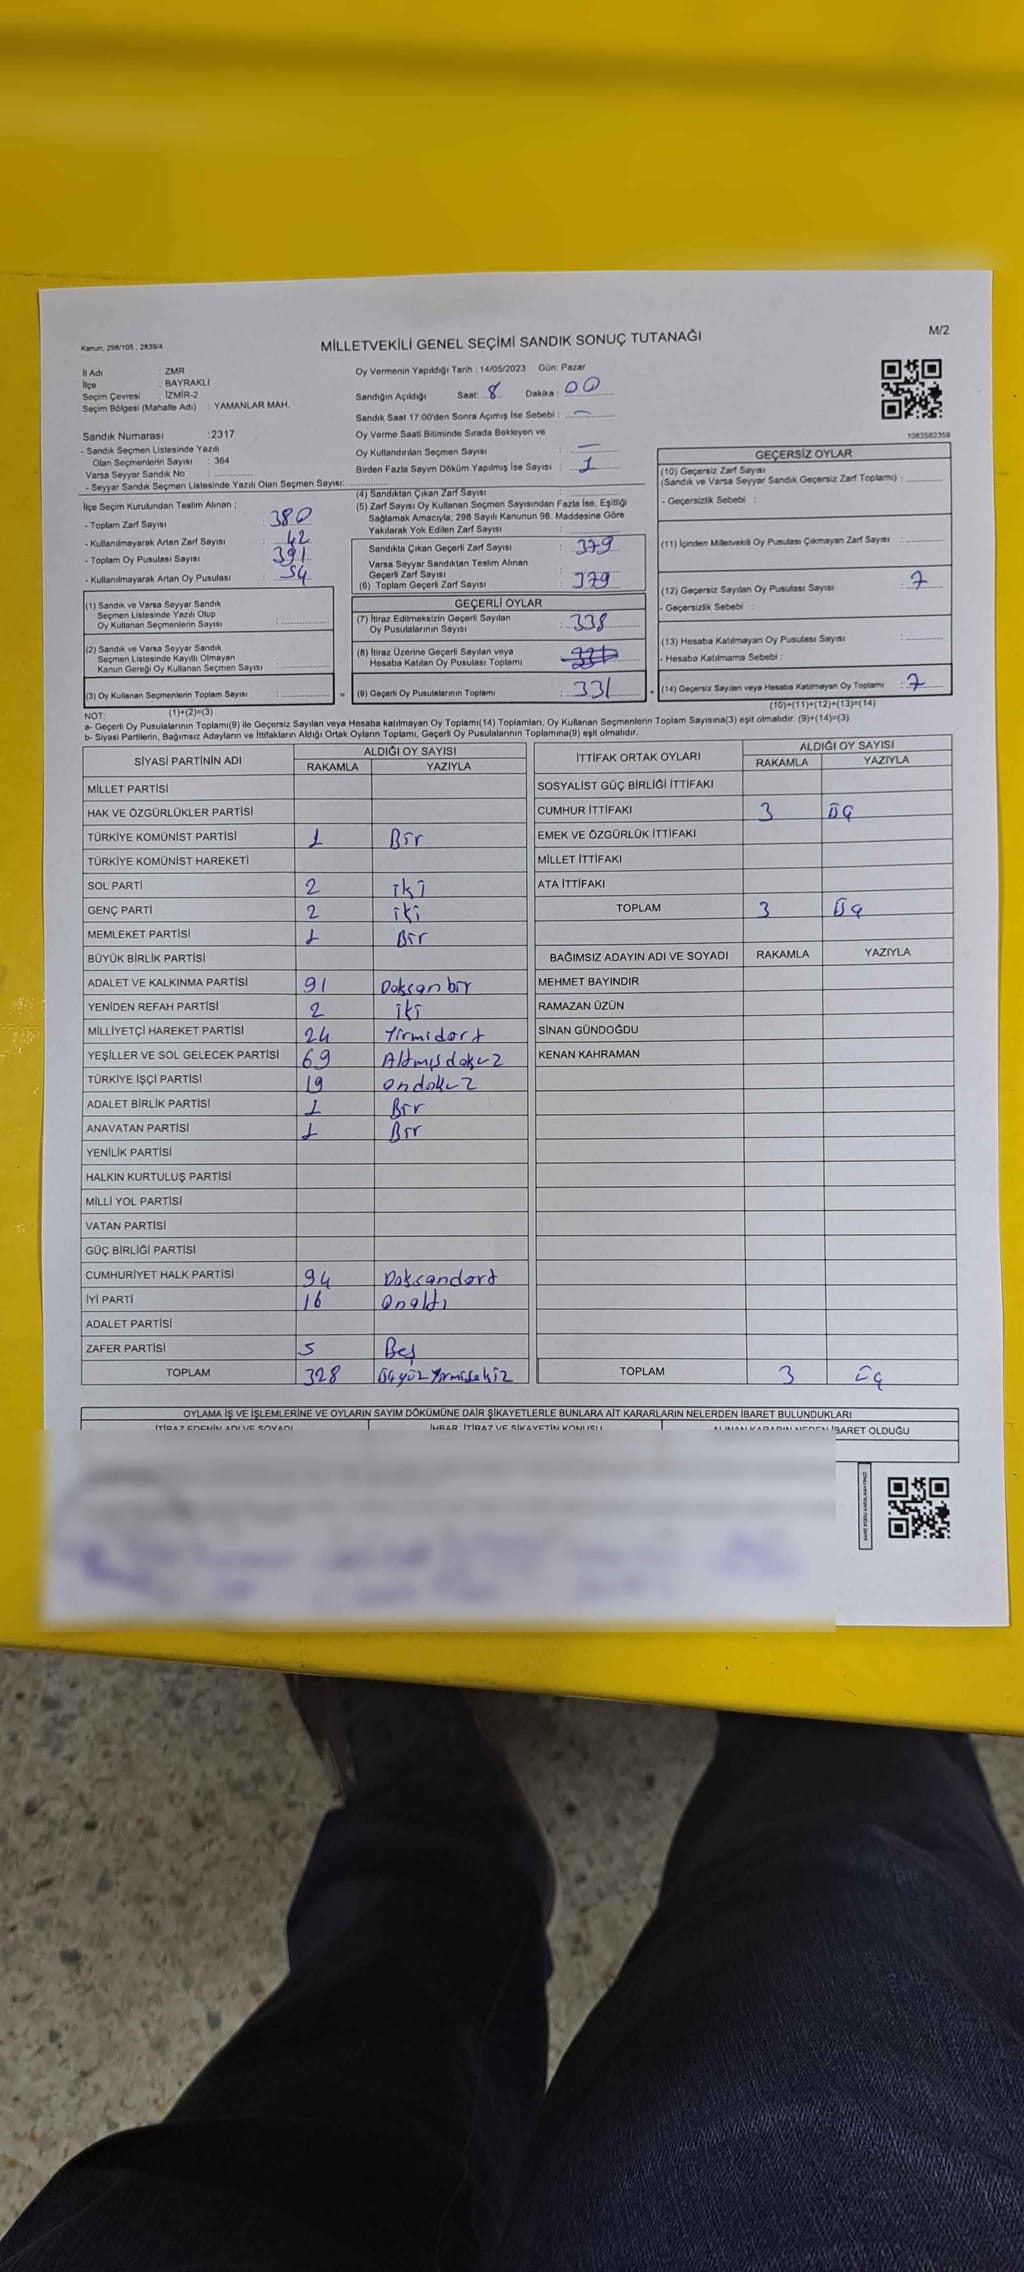 Kanun; 298/105 , 2839/4
MİLLETVEKİLİ GENEL SEÇİMİ SANDIK SONUÇ TUTANAĞI
M/2
İl Adı : ZMR
İlçe : BAYRAKLI
Seçim Çevresi : İZMİR-2
Seçim Bölgesi (Mahalle Adı) : YAMANLAR MAH.
Sandık Numarası :2317
- Sandık Seçmen Listesinde Yazılı
Olan Seçmenlerin Sayısı : 364
Varsa Seyyar Sandık No :
- Seyyar Sandık Seçmen Listesinde Yazılı Olan Seçmen Sayısı:
Oy Vermenin Yapıldığı Tarih : 14/05/2023 Gün: Pazar
Sandığın Açıldığı Saat: 8 Dakika : 00
Sandık Saat 17:00'den Sonra Açımış İse Sebebi : —
Oy Verme Saati Bitiminde Sırada Bekleyen ve
Oy Kullandırılan Seçmen Sayısı : —
Birden Fazla Sayım Döküm Yapılmış İse Sayısı : 1
1083582359
İlçe Seçim Kurulundan Teslim Alınan ;
- Toplam Zarf Sayısı : 380
- Kullanılmayarak Artan Zarf Sayısı : 42
- Toplam Oy Pusulası Sayısı : 391
- Kullanılmayarak Artan Oy Pusulası : 54
(1) Sandık ve Varsa Seyyar Sandık
Seçmen Listesinde Yazılı Olup
Oy Kullanan Seçmenlerin Sayısı :
(2) Sandık ve Varsa Seyyar Sandık
Seçmen Listesinde Kayıtlı Olmayan
Kanun Gereği Oy Kullanan Seçmen Sayısı :
(3) Oy Kullanan Seçmenlerin Toplam Sayısı : =
(1)+(2)=(3)
(4) Sandıktan Çıkan Zarf Sayısı :
(5) Zarf Sayısı Oy Kullanan Seçmen Sayısından Fazla İse, Eşitliği
Sağlamak Amacıyla; 298 Sayılı Kanunun 98. Maddesine Göre
Yakılarak Yok Edilen Zarf Sayısı :
Sandıkta Çıkan Geçerli Zarf Sayısı : 379
Varsa Seyyar Sandıktan Teslim Alınan
Geçerli Zarf Sayısı :
(6) Toplam Geçerli Zarf Sayısı : 379
GEÇERLİ OYLAR
(7) İtiraz Edilmeksizin Geçerli Sayılan
Oy Pusulalarının Sayısı : 338
(8) İtiraz Üzerine Geçerli Sayılan veya
Hesaba Katılan Oy Pusulası Toplamı :
(9) Geçerli Oy Pusulalarının Toplamı : 331
GEÇERSİZ OYLAR
(10) Geçersiz Zarf Sayısı
(Sandık ve Varsa Seyyar Sandık Geçersiz Zarf Toplamı) :
- Geçersizlik Sebebi :
(11) İçinden Milletvekili Oy Pusulası Çıkmayan Zarf Sayısı :
(12) Geçersiz Sayılan Oy Pusulası Sayısı : 7
- Geçersizlik Sebebi :
(13) Hesaba Katılmayan Oy Pusulası Sayısı :
- Hesaba Katılmama Sebebi :
(14) Geçersiz Sayılan veya Hesaba Katılmayan Oy Toplamı : 7
(10)+(11)+(12)+(13)=(14)
NOT:
a- Geçerli Oy Pusulalarının Toplamı(9) ile Geçersiz Sayılan veya Hesaba katılmayan Oy Toplamı(14) Toplamları, Oy Kullanan Seçmenlerin Toplam Sayısına(3) eşit olmalıdır. (9)+(14)=(3)
b- Siyasi Partilerin, Bağımsız Adayların ve İttifakların Aldığı Ortak Oyların Toplamı, Geçerli Oy Pusulalarının Toplamına(9) eşit olmalıdır.
SİYASİ PARTİNİN ADI ALDIĞI OY SAYISI
RAKAMLA YAZIYLA
MİLLET PARTİSİ
HAK VE ÖZGÜRLÜKLER PARTİSİ
TÜRKİYE KOMÜNİST PARTİSİ 1 Bir
TÜRKİYE KOMÜNİST HAREKETİ
SOL PARTİ 2 iki
GENÇ PARTİ 2 iki
MEMLEKET PARTİSİ 1 Bir
BÜYÜK BİRLİK PARTİSİ
ADALET VE KALKINMA PARTİSİ 91 Doksanbir
YENİDEN REFAH PARTİSİ 2 iki
MİLLİYETÇİ HAREKET PARTİSİ 24 Yirmidört
YEŞİLLER VE SOL GELECEK PARTİSİ 69 Altmışdokuz
TÜRKİYE İŞÇİ PARTİSİ 19 ondokuz
ADALET BİRLİK PARTİSİ 1 Bir
ANAVATAN PARTİSİ 1 Bir
YENİLİK PARTİSİ
HALKIN KURTULUŞ PARTİSİ
MİLLİ YOL PARTİSİ
VATAN PARTİSİ
GÜÇ BİRLİĞİ PARTİSİ
CUMHURİYET HALK PARTİSİ 94 Doksandört
İYİ PARTİ 16 onaltı
ADALET PARTİSİ
ZAFER PARTİSİ 5 Beş
TOPLAM 328 üçyüzYirmisekiz
İTTİFAK ORTAK OYLARI ALDIĞI OY SAYISI
RAKAMLA YAZIYLA
SOSYALİST GÜÇ BİRLİĞİ İTTİFAKI
CUMHUR İTTİFAKI 3 üç
EMEK VE ÖZGÜRLÜK İTTİFAKI
MİLLET İTTİFAKI
ATA İTTİFAKI
TOPLAM 3 üç
BAĞIMSIZ ADAYIN ADI VE SOYADI RAKAMLA YAZIYLA
MEHMET BAYINDIR
RAMAZAN ÜZÜN
SİNAN GÜNDOĞDU
KENAN KAHRAMAN
TOPLAM 3 üç
OYLAMA İŞ VE İŞLEMLERİNE VE OYLARIN SAYIM DÖKÜMÜNE DAİR ŞİKAYETLERLE BUNLARA AİT KARARLARIN NELERDEN İBARET BULUNDUKLARI
İTİRAZ EDENİN ADI VE SOYADI İHBAR, İTİRAZ VE ŞİKAYETİN KONUSU ALINAN KARARIN NEDEN İBARET OLDUĞU